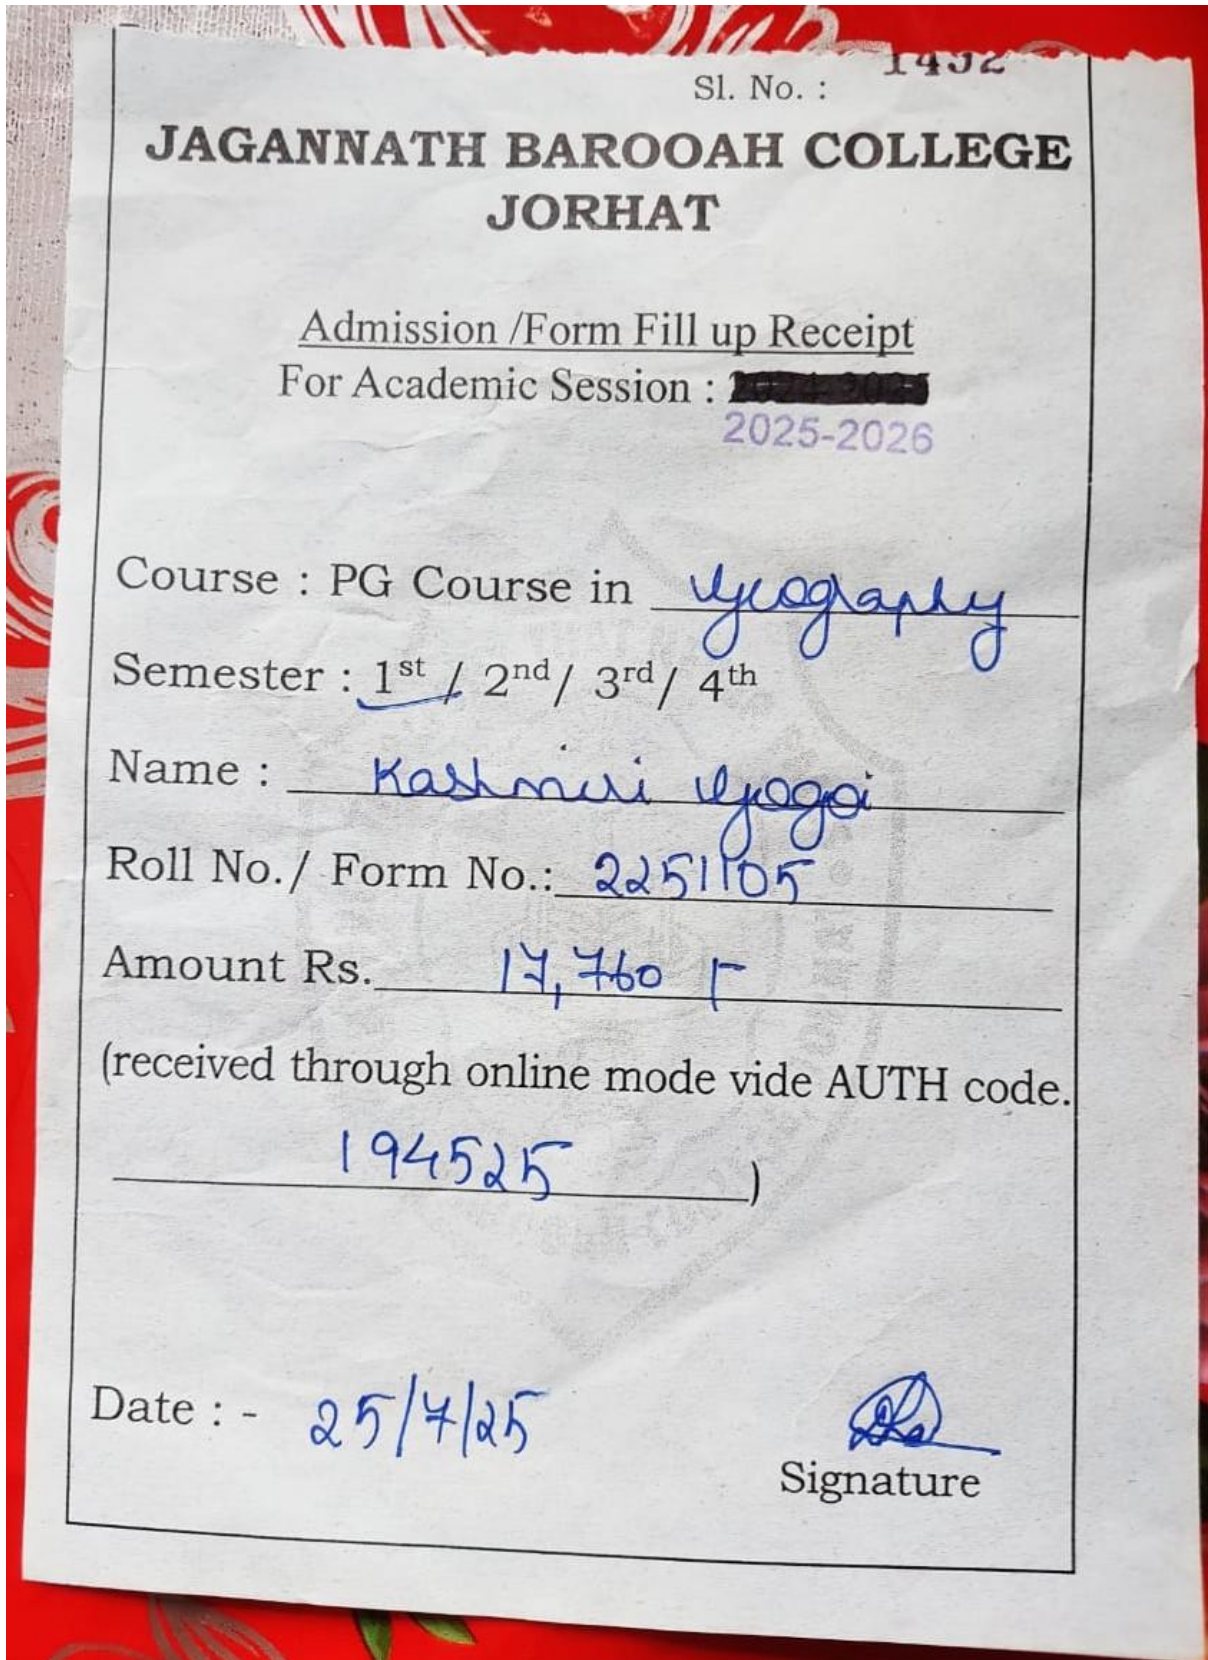 Sl. No. : 1432
JAGANNATH BAROOAH COLLEGE
JORHAT
Admission /Form Fill up Receipt
For Academic Session : 2024-2025
2025-2026
Course : PG Course in Geography
Semester : 1st / 2nd / 3rd / 4th
Name : Kashmiri Gogoi
Roll No./ Form No.: 2251105
Amount Rs. 17,760/-
(received through online mode vide AUTH code.
194525 )
Date : - 25/7/25
Signature